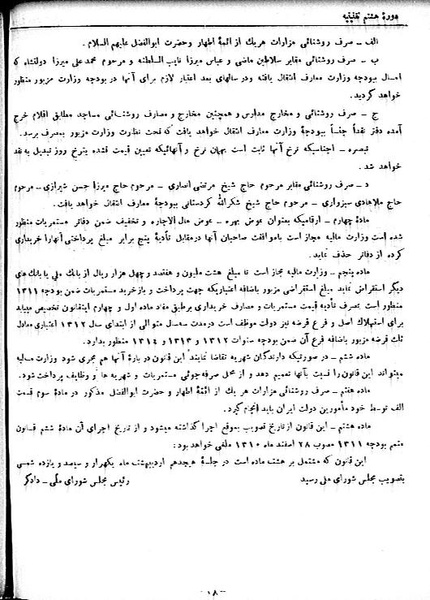 دورهٔ هشتم تقنینیه
الف ـ صرف روشنائی مزارات هریك از ائمهٔ اطهار و حضرت ابوالفضل علیهم السلام .
ب ـ صرف روشنائی مقابر سلاطین ماضی و عباس میرزا نایب السلطنه و مرحوم محمد علی میرزا دولتشاه كه
امسال ببودجهٔ وزارت معارف انتقال یافته ودرسالهای بعد اعتبار لازم برای آنها دربودجه وزارت مزبور منظور
خواهد گردید.
ج ـ صرف روشنائی و مخارج مدارس و همچنین مخارج و مصارف روشنائی مساجد مطابق اقلام خرج
آمده دفتر نقداً جنساً ببودجهٔ وزارت معارف انتقال خواهد یافت كه تحت نظارت وزارت مزبور بمصرف برسد.
تبصره ـ اجناسیكه نرخ آنها ثابت است بهمان نرخ و آنهائیكه تعیین قیمت نشده بنرخ روز تبدیل به نقد
خواهد شد .
د ـ صرف روشنائی مقابر مرحوم حاج شیخ مرتضی انصاری ـ مرحوم حاج میرزا حسن شیرازی ـ مرحوم
حاج ملاهادی سبزواری ـ مرحوم حاج شیخ شكرالله كردستانی ببودجهٔ وزارت معارف انتقال خواهد یافت.
مادهٔ چهارم ـ ارقامیكه بعنوان عوض بهره ـ عوض مال الاجاره و تخفیف ضمن دفاتر مستمریات منظور
شده است وزارت مالیه مجاز است باموافقت صاحبان آنها درمقابل تأدیهٔ پنج برابر مبلغ پرداختی آنهارا خریداری
كرده از دفاتر حذف نماید.
مادهٔ پنجم ـ وزارت مالیه مجاز است تا مبلغ هشت ملیون و هفتصد و چهل هزار ریال از بانك ملی یا بانك های
دیگر استقراض نماید مبلغ استقراضی مزبور باضافه اعتباریكه جهت پرداخت و بازخرید مستمریات ضمن بودجه ۱۳۱۱
منظور است بمصرف تأدیه قیمت مستمریات و مصارف خریداری برطبق مفاد ماده اول و چهارم اینقانون تخصیص میباید
برای استهلاك اصل و فرع قرضه نیز دولت موظف است درمدت سه سال متوالی از ابتدای سال ۱۳۱۲ اعتباری معادل
ثلث قرضه مزبور باضافه فرع آن ضمن بودجه سنوات ۱۳۱۲ و ۱۳۱۳ و ۱۳۱۴ منظور بدارد.
ماده ششم ـ در صورتیكه دارندگان شهریه تقاضا نمایند این قانون درباره آنها هم مجری شود وزارت مالیه
میتواند این قانون را نسبت بآنها تعمیم دهد و از محل صرفه جوئی مستمریات و شهریه ها و وظایف پرداخت شود.
ماده هفتم ـ صرف روشنائی مزارات هر یك از ائمهٔ اطهار و حضرت ابوالفضل مذكور در مادهٔ سوم قسمت
الف توسط خود مأمورین دولت ایران باید انجام گیرد.
مادهٔ هشتم ـ این قانون ازتاریخ تصویب بموقع اجرا گذاشته میشود و از تاریخ اجرای آن مادهٔ ششم قانون
متمم بودجه ۱۳۱۱ مصوب ۲۸ اسفند ماه ۱۳۱۰ ملغی خواهد بود:
این قانون كه مشتمل بر هشت ماده است در جلسهٔ هیجدهم اردیبهشت ماه یكهزار و سیصد و یازده شمسی
بتصویب مجلس شورای ملی رسید
رئیس مجلس شورای ملی ـ دادگر
ـ ۱۸ ـ